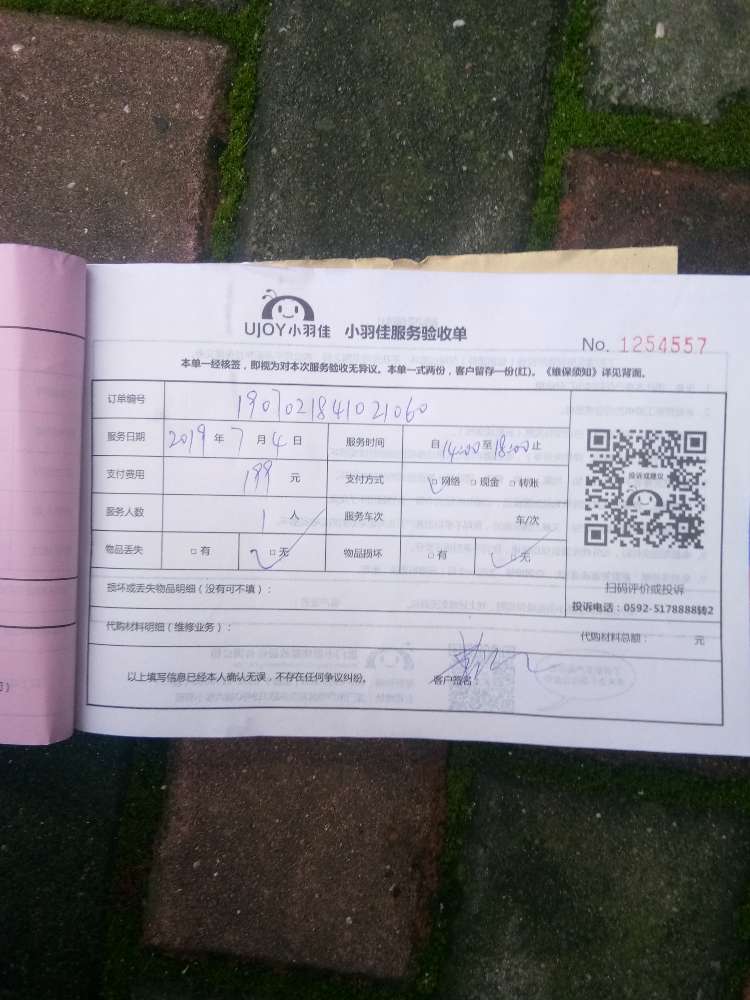 UJOY小羽佳 小羽佳服务验收单
No. 1254557
本单一经核签，即视为对本次服务验收无异议。本单一式两份，客户留存一份(红)。《维保须知》详见背面。
订单编号 1907021841021060
服务日期 2019 年 7 月 4 日 服务时间 自 14:00 至 18:00 止
支付费用 199 元 支付方式 □网络 □现金 □转账
服务人数 1 人 服务车次 车/次
物品丢失 □有 □无 物品损坏 □有 □无
投诉或建议
扫码评价或投诉
投诉电话：0592-5178888转2
损坏或丢失物品明细（没有可不填）：
代购材料明细（维修业务）：
代购材料总额： 元
以上填写信息已经本人确认无误，不存在任何争议纠纷。 客户签名：